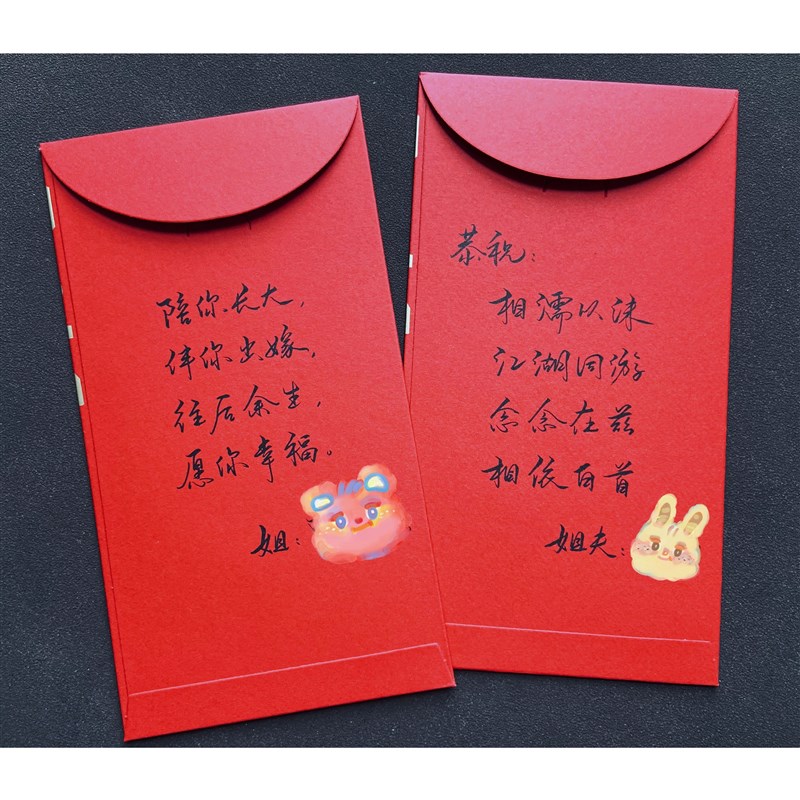 陪你长大，
伴你出嫁，
往后余生，
愿你幸福。
姐：
恭祝：
相濡以沫
江湖同游
念念在兹
相依百首
姐夫：